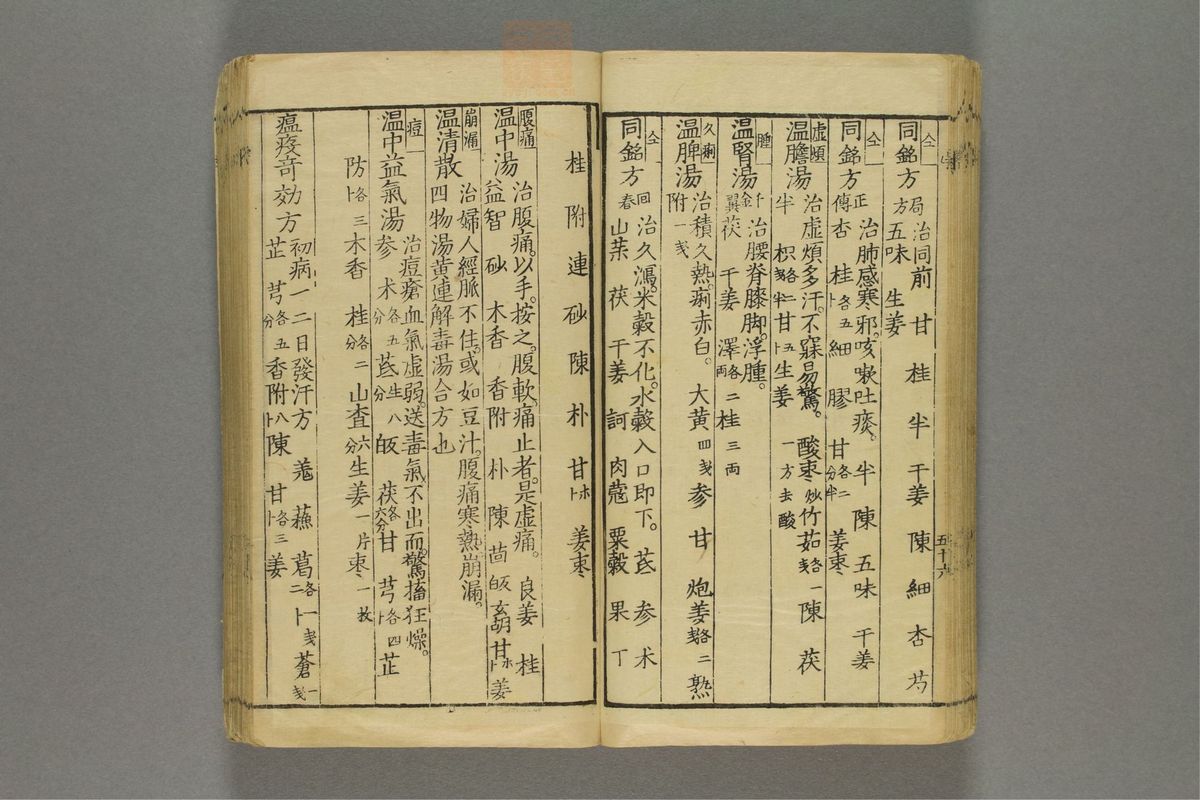 仝
同銘方 局方 治同前 甘 桂 半 干姜 陳 細 杏 芍
五味 生姜
仝
同銘方 正傳 治肺感寒邪。咳嗽吐痰。 半 陳 五味 干姜
杏 桂 各五卜 細 膠 甘 各二分半 姜棗
虚煩
温膽湯 治虚煩多汗。不寐易驚。 酸棗 炒 竹茹 各一戔 陳 茯
半 枳 各二戔 甘 五卜 生姜 一方去酸
腫
温腎湯 千金翼 治腰脊膝脚。浮腫。
茯 干姜 澤 各二両 桂 三両
久痢
温脾湯 治積久熱。痢赤白。 大黄 四戔 参 甘 炮姜 各二戔 熟
附 一戔
仝
同銘方 回春 治久瀉。米穀不化。水穀入口即下。 芪 参 术
山茱 茯 干姜 訶 肉蔻 粟穀 果 丁
五十六
桂 附 連 砂 陳 朴 甘 卜 姜棗
腹痛
温中湯 治腹痛。以手。按之。腹軟。痛止者。是虚痛。 良姜 桂
益智 砂 木香 香附 朴 陳 茴 皈 玄胡 甘 卜 姜
崩漏
温清散 治婦人經脈不住。或如豆汁。腹痛寒熱崩漏。
四物湯黄連解毒湯合方也
痘
温中益氣湯 治痘瘡血氣虚弱。送毒氣不出而。驚搐狂燥。
参 术 各五分 芪 生八分 皈 茯 各六分 甘 芎 各四卜 芷
防 各三卜 木香 桂 各二分 山査 六分 生姜 一片 棗 一枚
瘟疫奇効方 初病一二日發汗方 羗 蘓 葛 各一卜二 蒼 一戔
芷 芎 各五分 香附 八卜 陳 甘 各三卜 姜